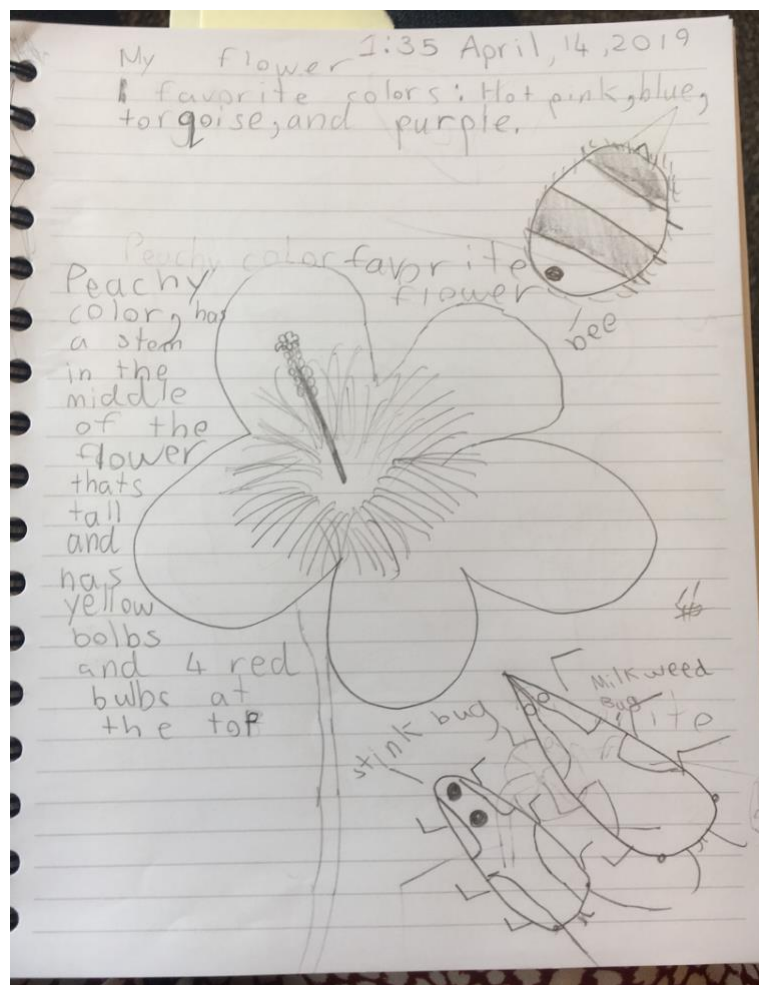 My flower 1:35 April, 14, 2019
favorite colors: Hot pink, blue,
torqoise, and purple.
Peachy color favorite
flower
bee
Peachy
color, has
a stem
in the
middle
of the
flower
thats
tall
and
has
yellow
bolbs
and 4 red
bulbs at
the top
Milkweed
Bug
stink bug